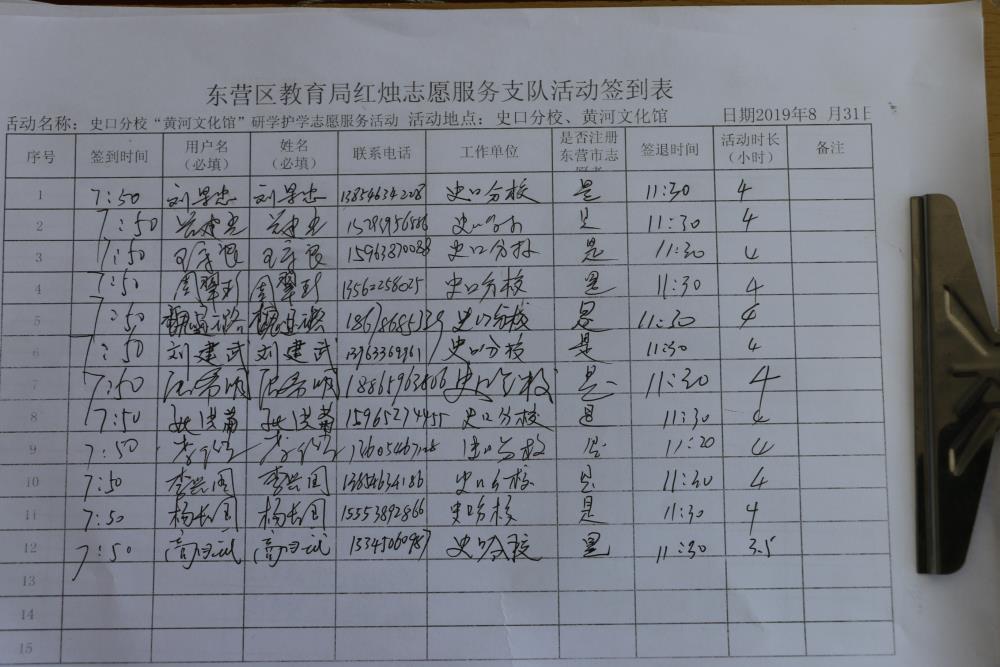 东营区教育局红烛志愿服务支队活动签到表
活动名称：史口分校“黄河文化馆”研学护学志愿服务活动 活动地点：史口分校、黄河文化馆 日期2019年8 月31日
序号 签到时间 用户名（必填） 姓名（必填） 联系电话 工作单位 是否注册东营市志愿者 签退时间 活动时长（小时） 备注
1 7:50 刘景忠 刘景忠 13854634228 史口分校 是 11:30 4
2 7:50 史口分校 是 11:30 4
3 7:50 15963870088 史口分校 是 11:30 4
4 7:50 周翠彩 周翠彩 13562258025 史口分校 是 11:30 4
5 7:50 18678685339 史口分校 是 11:30 4
6 7:50 刘建武 刘建武 史口分校 是 11:30 4
7 7:50 18865963866 史口分校 是 11:30 4
8 7:50 姚洪菊 姚洪菊 15965274455 史口分校 是 11:30 4
9 7:50 史口分校 11:20 4
10 7:50 李兴国 李兴国 13854634186 史口分校 是 11:30 4
11 7:50 杨长国 杨长国 15553892866 史口分校 是 11:30 4
12 7:50 13345060987 史口分校 是 11:30 3.5
13
14
15